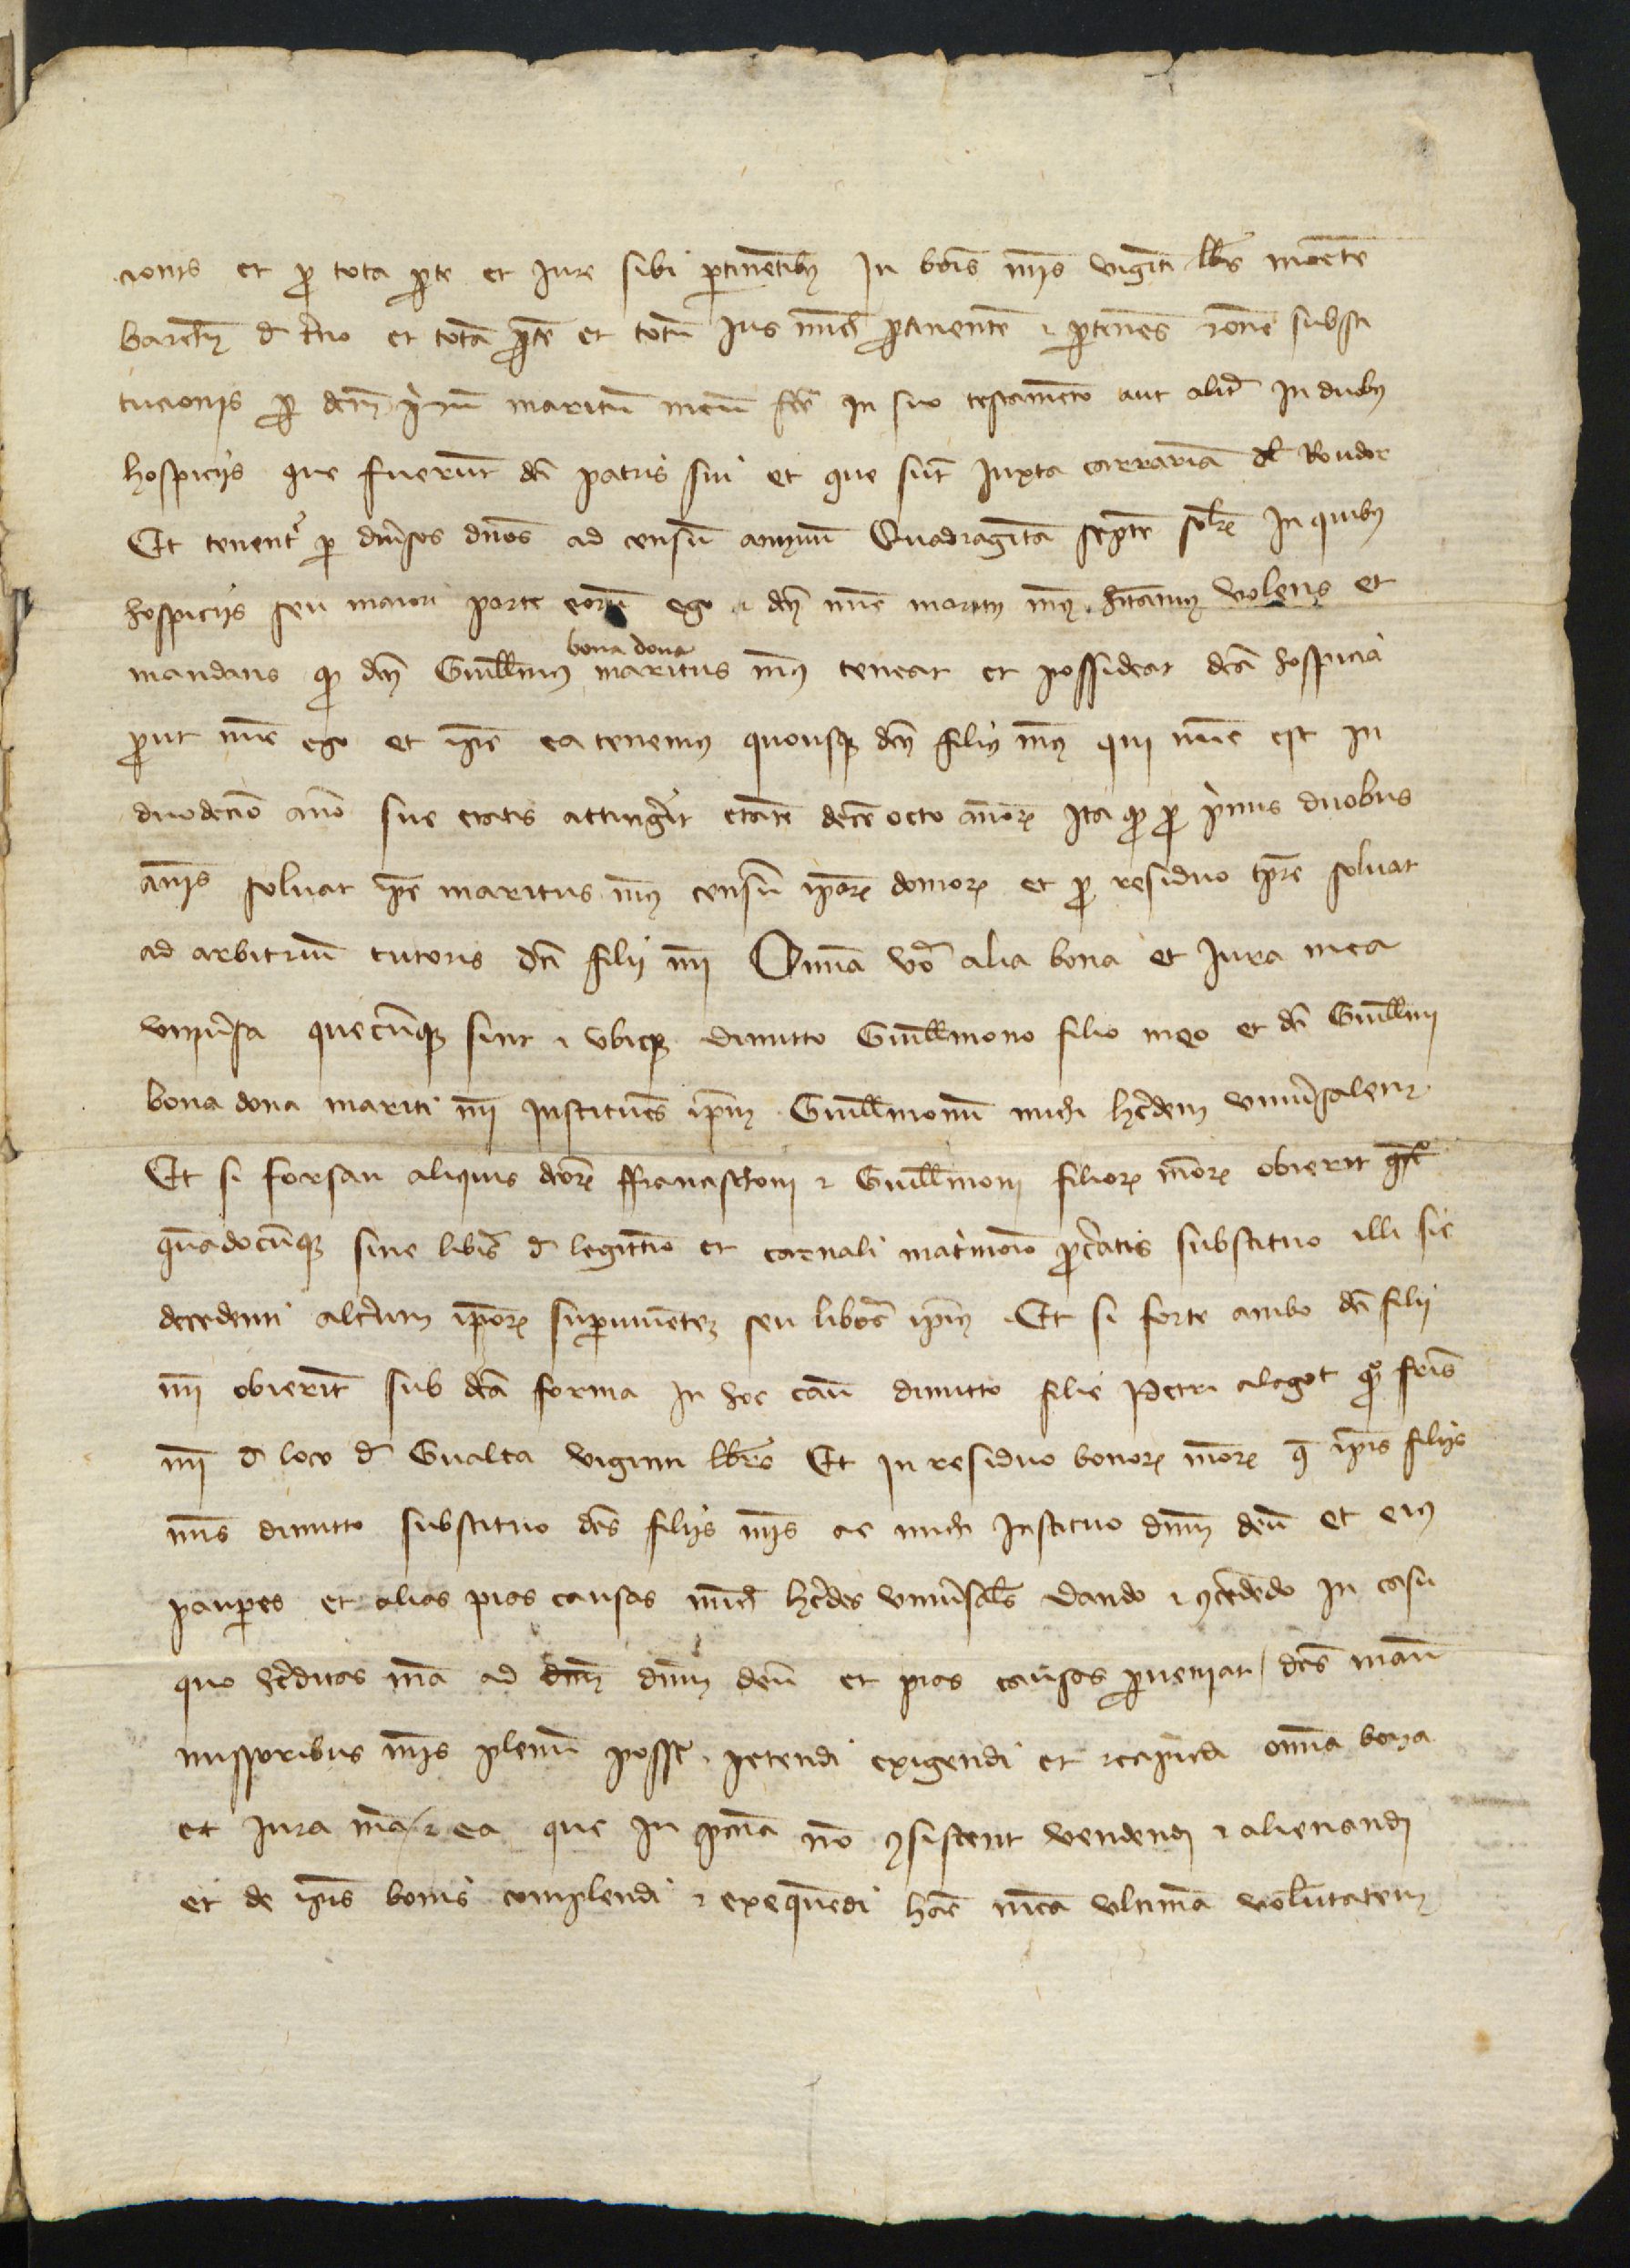 cionis et p tota pte et Jure sibi ptinetibus In bois meis viginti lbrs monete
barchn de tno et tota pte et totu Jus michi ptinente et ptines rone substi
tucionis p dcm pmu maritu meu fce in suo testameto aut alit In duobus
hospiciis que fuerut dci patris sui et que sut Juxta carraria del Bondor
Et tenent p diuisos dnos ad censu annuu Quadraginta septe solr In quibus
hospiciis seu maiori parte eoru ego et dcus nuc maritus meus hitamus volens et
bona dona
mandans qd dcus Guillmus maritus meus teneat et possideat dca hospicia
put nuc ego et ipse ea tenemus quousque dcus filius meus qui nuc est in
duodecio ano sue etatis attingerit etate dece octo anor Ita qd p primis duobus
anis soluat ipe maritus meus censu ipor domor et p residuo tpre soluat
ad arbitriu tutoris dci filii mei Omia vo alia bona et Jura mea
vniusa quecunque sint et vbicque dimitto Guillmono filio meo et dci Guillmi
bona dona mariti mei Instituens ipm Guillmonu michi heredem vniuersalem
Et si forsan aliquis dcor ffranaschoni et Guillmoni filior meor obierit
quadocunque sine libis de legittio et carnali matrimoio pcreatis substituo illi sic
decedenti alterum ipor supuiuetem seu libos ipius Et si forte ambo dci filii
mei obierit sub dca forma In hoc casu dimitto filie Petri alagot qo fris
mei de loco de Gualta viginti lbrs Et in residuo bonor meor q ipis filiis
meis dimitto substituo dcis filiis meis ac michi Instituo dnm deu et eius
paupes et alias pias causas michi heredes vniuersales dando et cocededo In casu
quo hereditas mea ad dnm deu et pias causas pueniat dcis manu
missoribus meis plenu posse petendi exigendi et recipiendi omia bona
et Jura mea et ea que in pecunia no cosistent vendendi et alienandi
et de ipis bonis complendi et exequendi hac mea vltima voluntatem